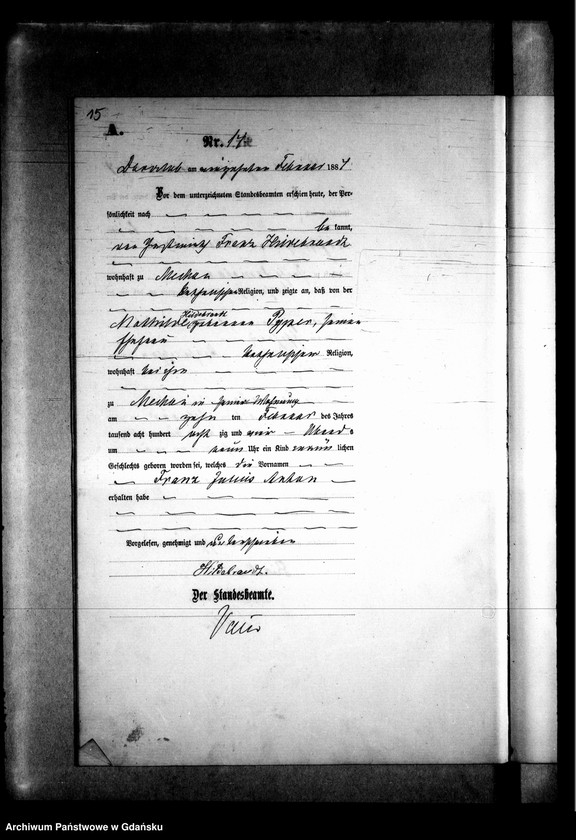 15
A.
Nr. 17
am Februar 1884
Vor dem unterzeichneten Standesbeamten erschien heute, der Per-
sönlichkeit nach
be kannt,
Franz Hildebrandt
wohnhaft zu
katholischer Religion, und zeigte an, daß von der
Hildebrandt
Mathilde geborenen seiner
Ehefrau
katholischer Religion,
wohnhaft bei ihm
zu in seiner Wohnung
am zehn ten Februar des Jahres
tausend acht hundert acht zig und vier Abends
um neun Uhr ein Kind männ lichen
Geschlechts geboren worden sei, welches die Vornamen
Franz Julius Anton
erhalten habe
Vorgelesen, genehmigt und unterschrieben
Hildebrandt.
Der Standesbeamte.
Archiwum Państwowe w Gdańsku